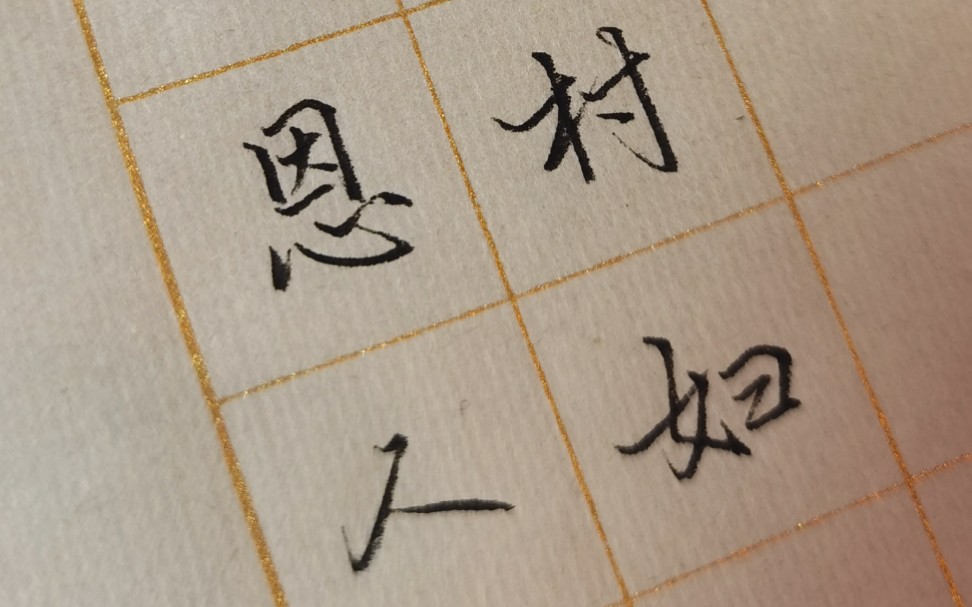 村妇
恩人